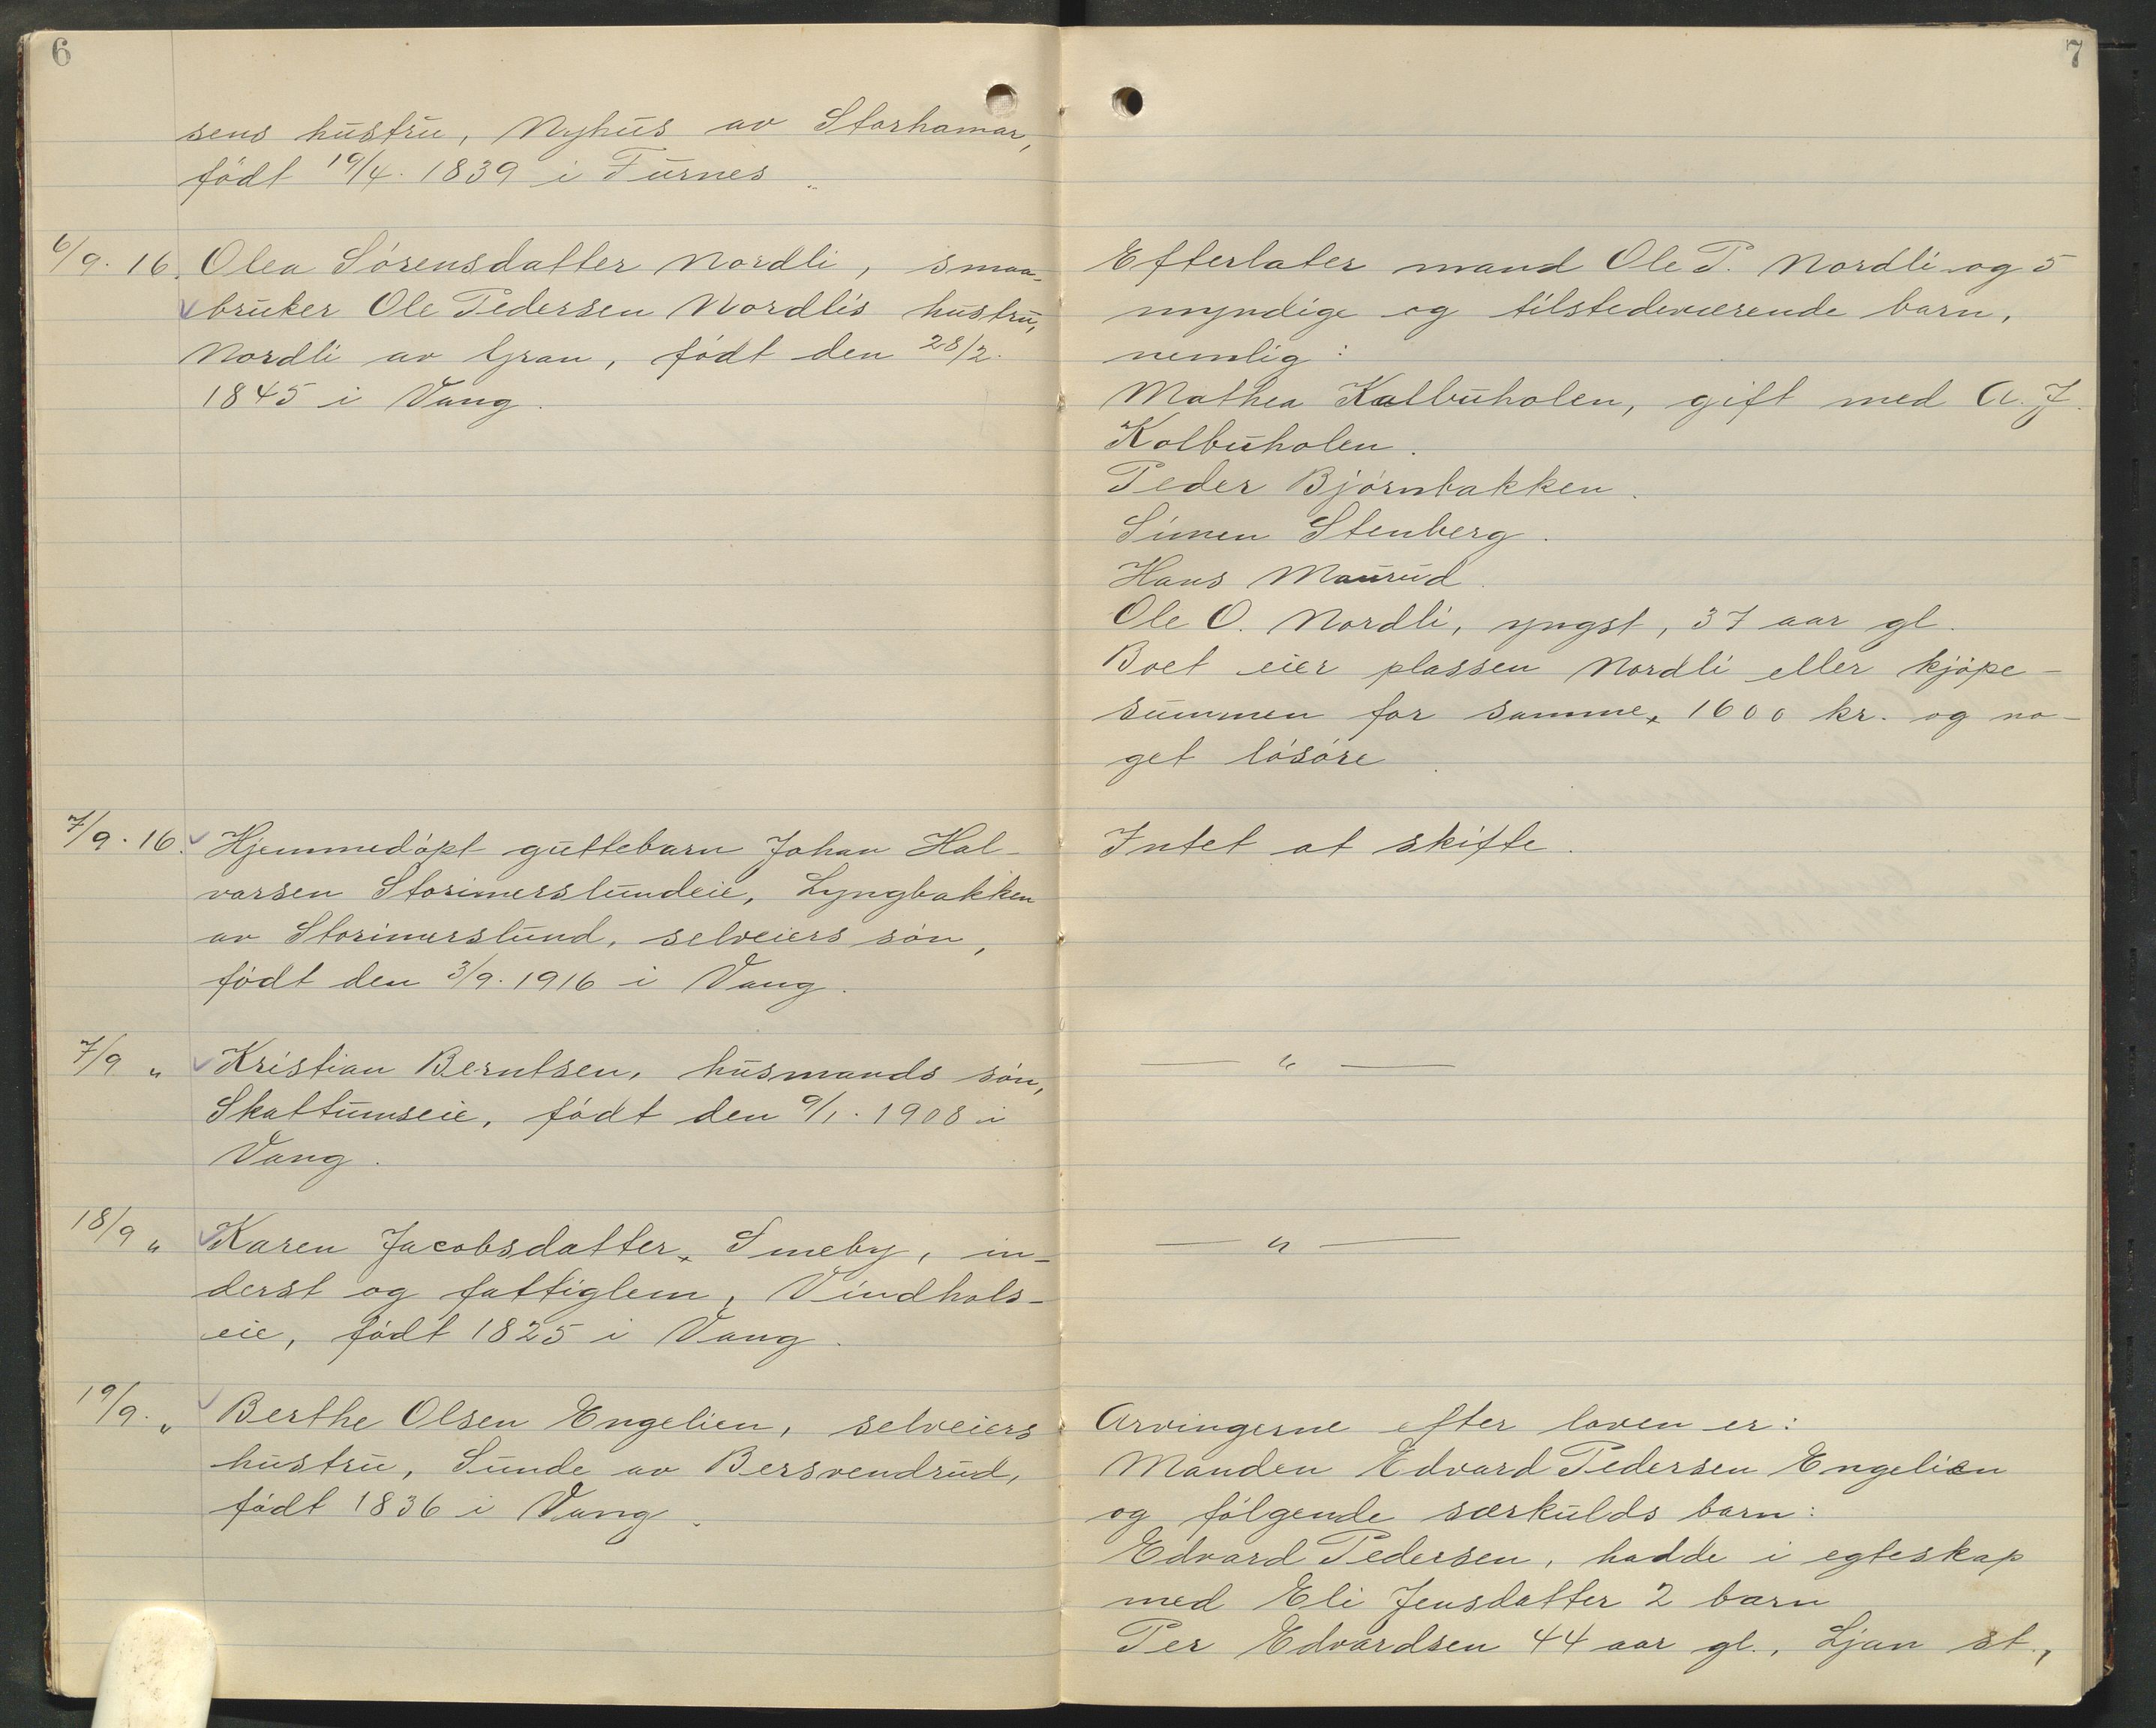 6
sens hustru, Nyhus av Storhamar,
født 19/4. 1839 i Furnes.
6/9. 16. Olea Sørensdatter Nordli, smaa-
bruker Ole Pedersen Nordlis hustru,
Nordli av Gran, født den 28/2.
1845 i Vang.
7/9. 16. Hjemmedøpt guttebarn Johan Hal-
varsen Storimerslundeie, Lyngbakken
av Storimerslund, selveiers søn,
født den 3/9. 1916 i Vang.
7/9 " Kristian Berntsen, husmands søn,
Skattumseie, født den 9/1. 1908 i
Vang.
18/9 " Karen Jacobsdatter, Smeby, in-
derst og fattiglem, Vindhols-
eie, født 1825 i Vang.
19/9. " Berthe Olsen Engelien, selveiers
hustru, Sunde av Bersvendrud,
født 1836 i Vang.
7
Efterlater mand Ole P. Nordli og 5
myndige og tilstedeværende barn,
nemlig:
Mathea Kolbuholen, gift med A. J.
Kolbuholen.
Peder Bjørnbakken.
Simen Stenberg.
Hans Maurud.
Ole O. Nordli, yngst, 37 aar gl.
Boet eier plassen Nordli eller kjøpe-
summen for samme, 1600 kr. og no-
get løsøre.
Intet at skifte.
— " —
— " —
Arvingerne efter loven er:
Manden Edvard Pedersen Engelien
og følgende særkulds barn:
Edvard Pedersen, hadde i egteskap
med Eli Jensdatter 2 barn
Per Edvardsen 44 aar gl., Ljan st.,